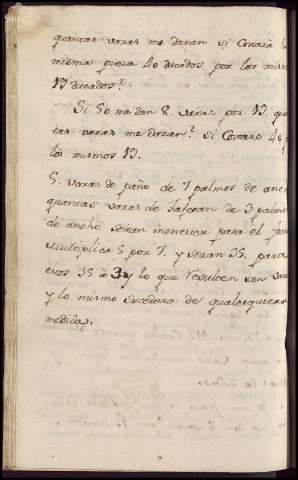 quantas varas me daran si Costara la
misma pieza 40 ducados por los mismos
19 ducados?
Si 50 me dan 8. varas por 19. quan
tas varas me daran? si Costare 40 p
los mismos 19.
5. varas de paño de 7 palmos de ancho
quantas varas de Tafetan de 3 palmos
de ancho seran menester para el
Multiplica 5 por 7. y seran 35. parte
esos 35 à 3 y lo que resulten son varas
y lo mismo sucedera de qualesquiera
medida.